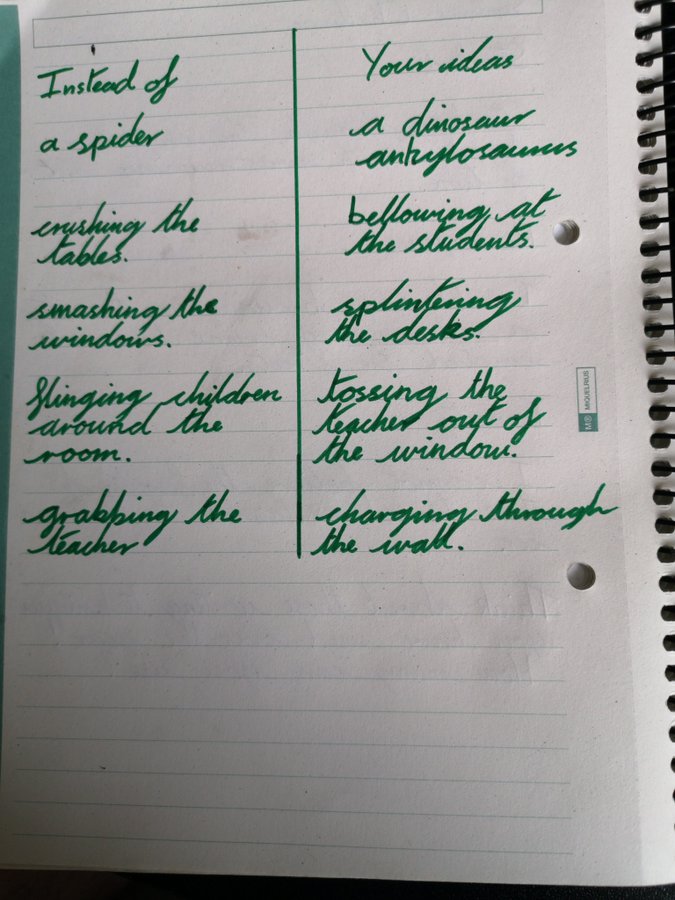 Instead of
a spider
crushing the
tables.
smashing the
windows.
flinging children
around the
room.
grabbing the
teacher
Your ideas
a dinosaur
ankylosaurus
bellowing at
the students.
splintering
the desks.
tossing the
teacher out of
the window.
charging through
the wall.
MIQUELRIUS